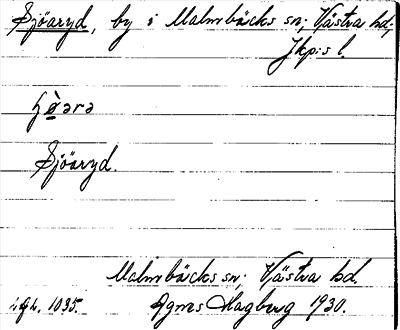 Sjöaryd, by i Malmbäcks sn; Västra hd;
Jkp:s l.
Sjöaryd.
Malmbäcks sn; Västra hd.
Agnes Hagberg 1930.